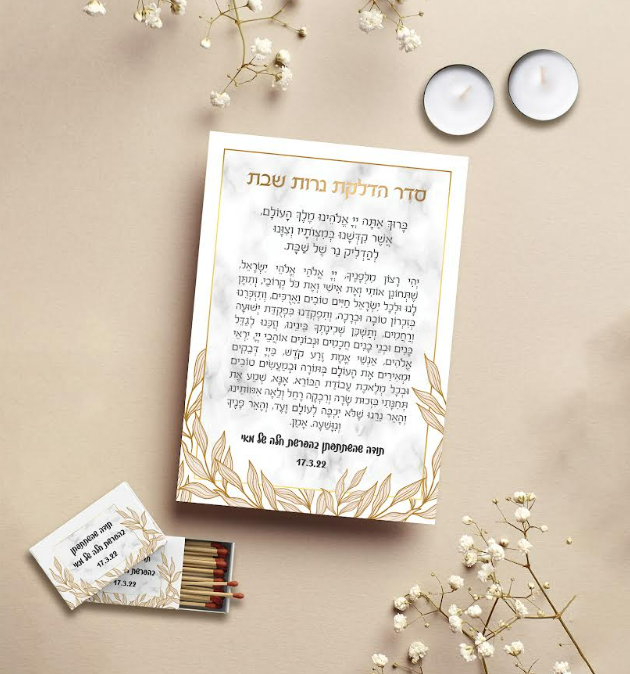 סדר הדלקת נרות שבת
בָּרוּךְ אַתָּה יְיָ אֱלֹהֵינוּ מֶלֶךְ הָעוֹלָם,
אֲשֶׁר קִדְּשָׁנוּ בְּמִצְוֹתָיו וְצִוָּנוּ
לְהַדְלִיק נֵר שֶׁל שַׁבָּת.
יְהִי רָצוֹן מִלְּפָנֶיךָ, יְיָ אֱלֹהַי אֱלֹהֵי יִשְׂרָאֵל,
שֶׁתְּחוֹנֵן אוֹתִי וְאֶת אִישִׁי וְאֶת כֹּל קְרוֹבַי, וְתִתֵּן
לָנוּ וּלְכָל יִשְׂרָאֵל חַיִּים טוֹבִים וַאֲרֻכִּים, וְתִזְכְּרֵנוּ
בְּזִכְרוֹן טוֹבָה וּבְרָכָה, וְתִפְקְדֵנוּ בִּפְקֻדַּת יְשׁוּעָה
וְרַחֲמִים, וְתַשְׁכֵּן שְׁכִינָתְךָ בֵּינֵינוּ, וְזַכֵּנוּ לְגַדֵּל
בָּנִים וּבְנֵי בָנִים חֲכָמִים וּנְבוֹנִים אוֹהֲבֵי יְיָ יִרְאֵי
אֱלֹהִים, אַנְשֵׁי אֱמֶת זֶרַע קֹדֶשׁ, בַּייָ דְּבֵקִים
וּמְאִירִים אֶת הָעוֹלָם בַּתּוֹרָה וּבְמַעֲשִׂים טוֹבִים
וּבְכָל מְלֶאכֶת עֲבוֹדַת הַבּוֹרֵא. אָנָּא, שְׁמַע אֶת
תְּחִנָּתִי בִּזְכוּת שָׂרָה וְרִבְקָה רָחֵל וְלֵאָה אִמּוֹתֵינוּ,
וְהָאֵר נֵרֵנוּ שֶׁלֹּא יִכְבֶּה לְעוֹלָם וָעֶד, וְהָאֵר פָּנֶיךָ
וְנִוָּשֵׁעָה. אָמֵן.
תודה שהשתתפתן בהפרשת חלה של מאי
17.3.22
תודה שהשתתפתן
בהפרשת חלה של מאי
17.3.22
בהפרשת
17.3.22